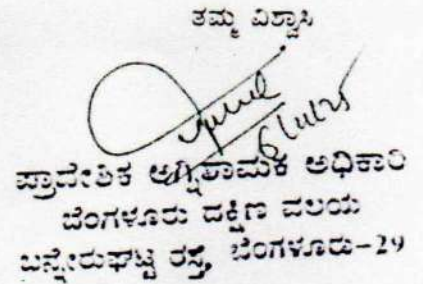 ತಮ್ಮ ವಿಶ್ವಾಸಿ
6/11/25
ಪ್ರಾದೇಶಿಕ ಅಗ್ನಿಶಾಮಕ ಅಧಿಕಾರಿ
ಬೆಂಗಳೂರು ದಕ್ಷಿಣ ವಲಯ
ಬನ್ನೇರುಘಟ್ಟ ರಸ್ತೆ, ಬೆಂಗಳೂರು-29